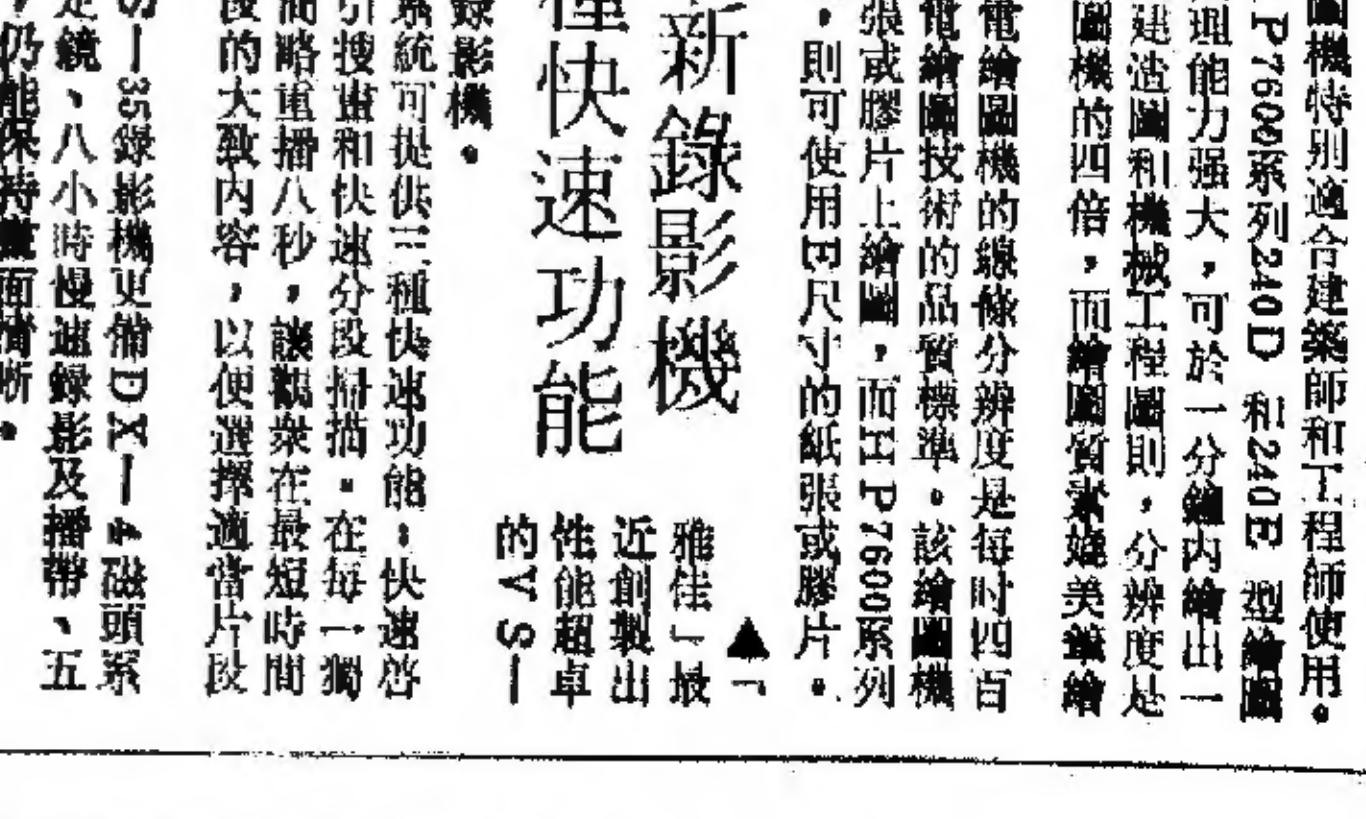 圖機特別適合建築師和工程師使用。
P7600系列240D 和240E 型繪圖
理能力强大，可於一分鐘內繪出一
建造圖和機械工程圖則，分辨度是
圖機的四倍，而繪圖質素媲美筆繪
電繪圖機的線條分辨度是每吋四百
電繪圖技術的品質標準。該繪圖機
張或膠片上繪圖，而HP7600系列
，則可使用E尺寸的紙張或膠片。
新錄影機
種快速功能
▲「
雅佳」最
近創製出
性能超卓
的VS—
錄影機。
系統可提供三種快速功能：快速啓
引搜畫和快速分段掃描。在每一獨
間略重播八秒，讓觀衆在最短時間
段的大致內容，以便選擇適當片段
S—35錄影機更備DX—4磁頭系
定鏡、八小時慢速錄影及播帶、五
，仍能保持畫面清晰。